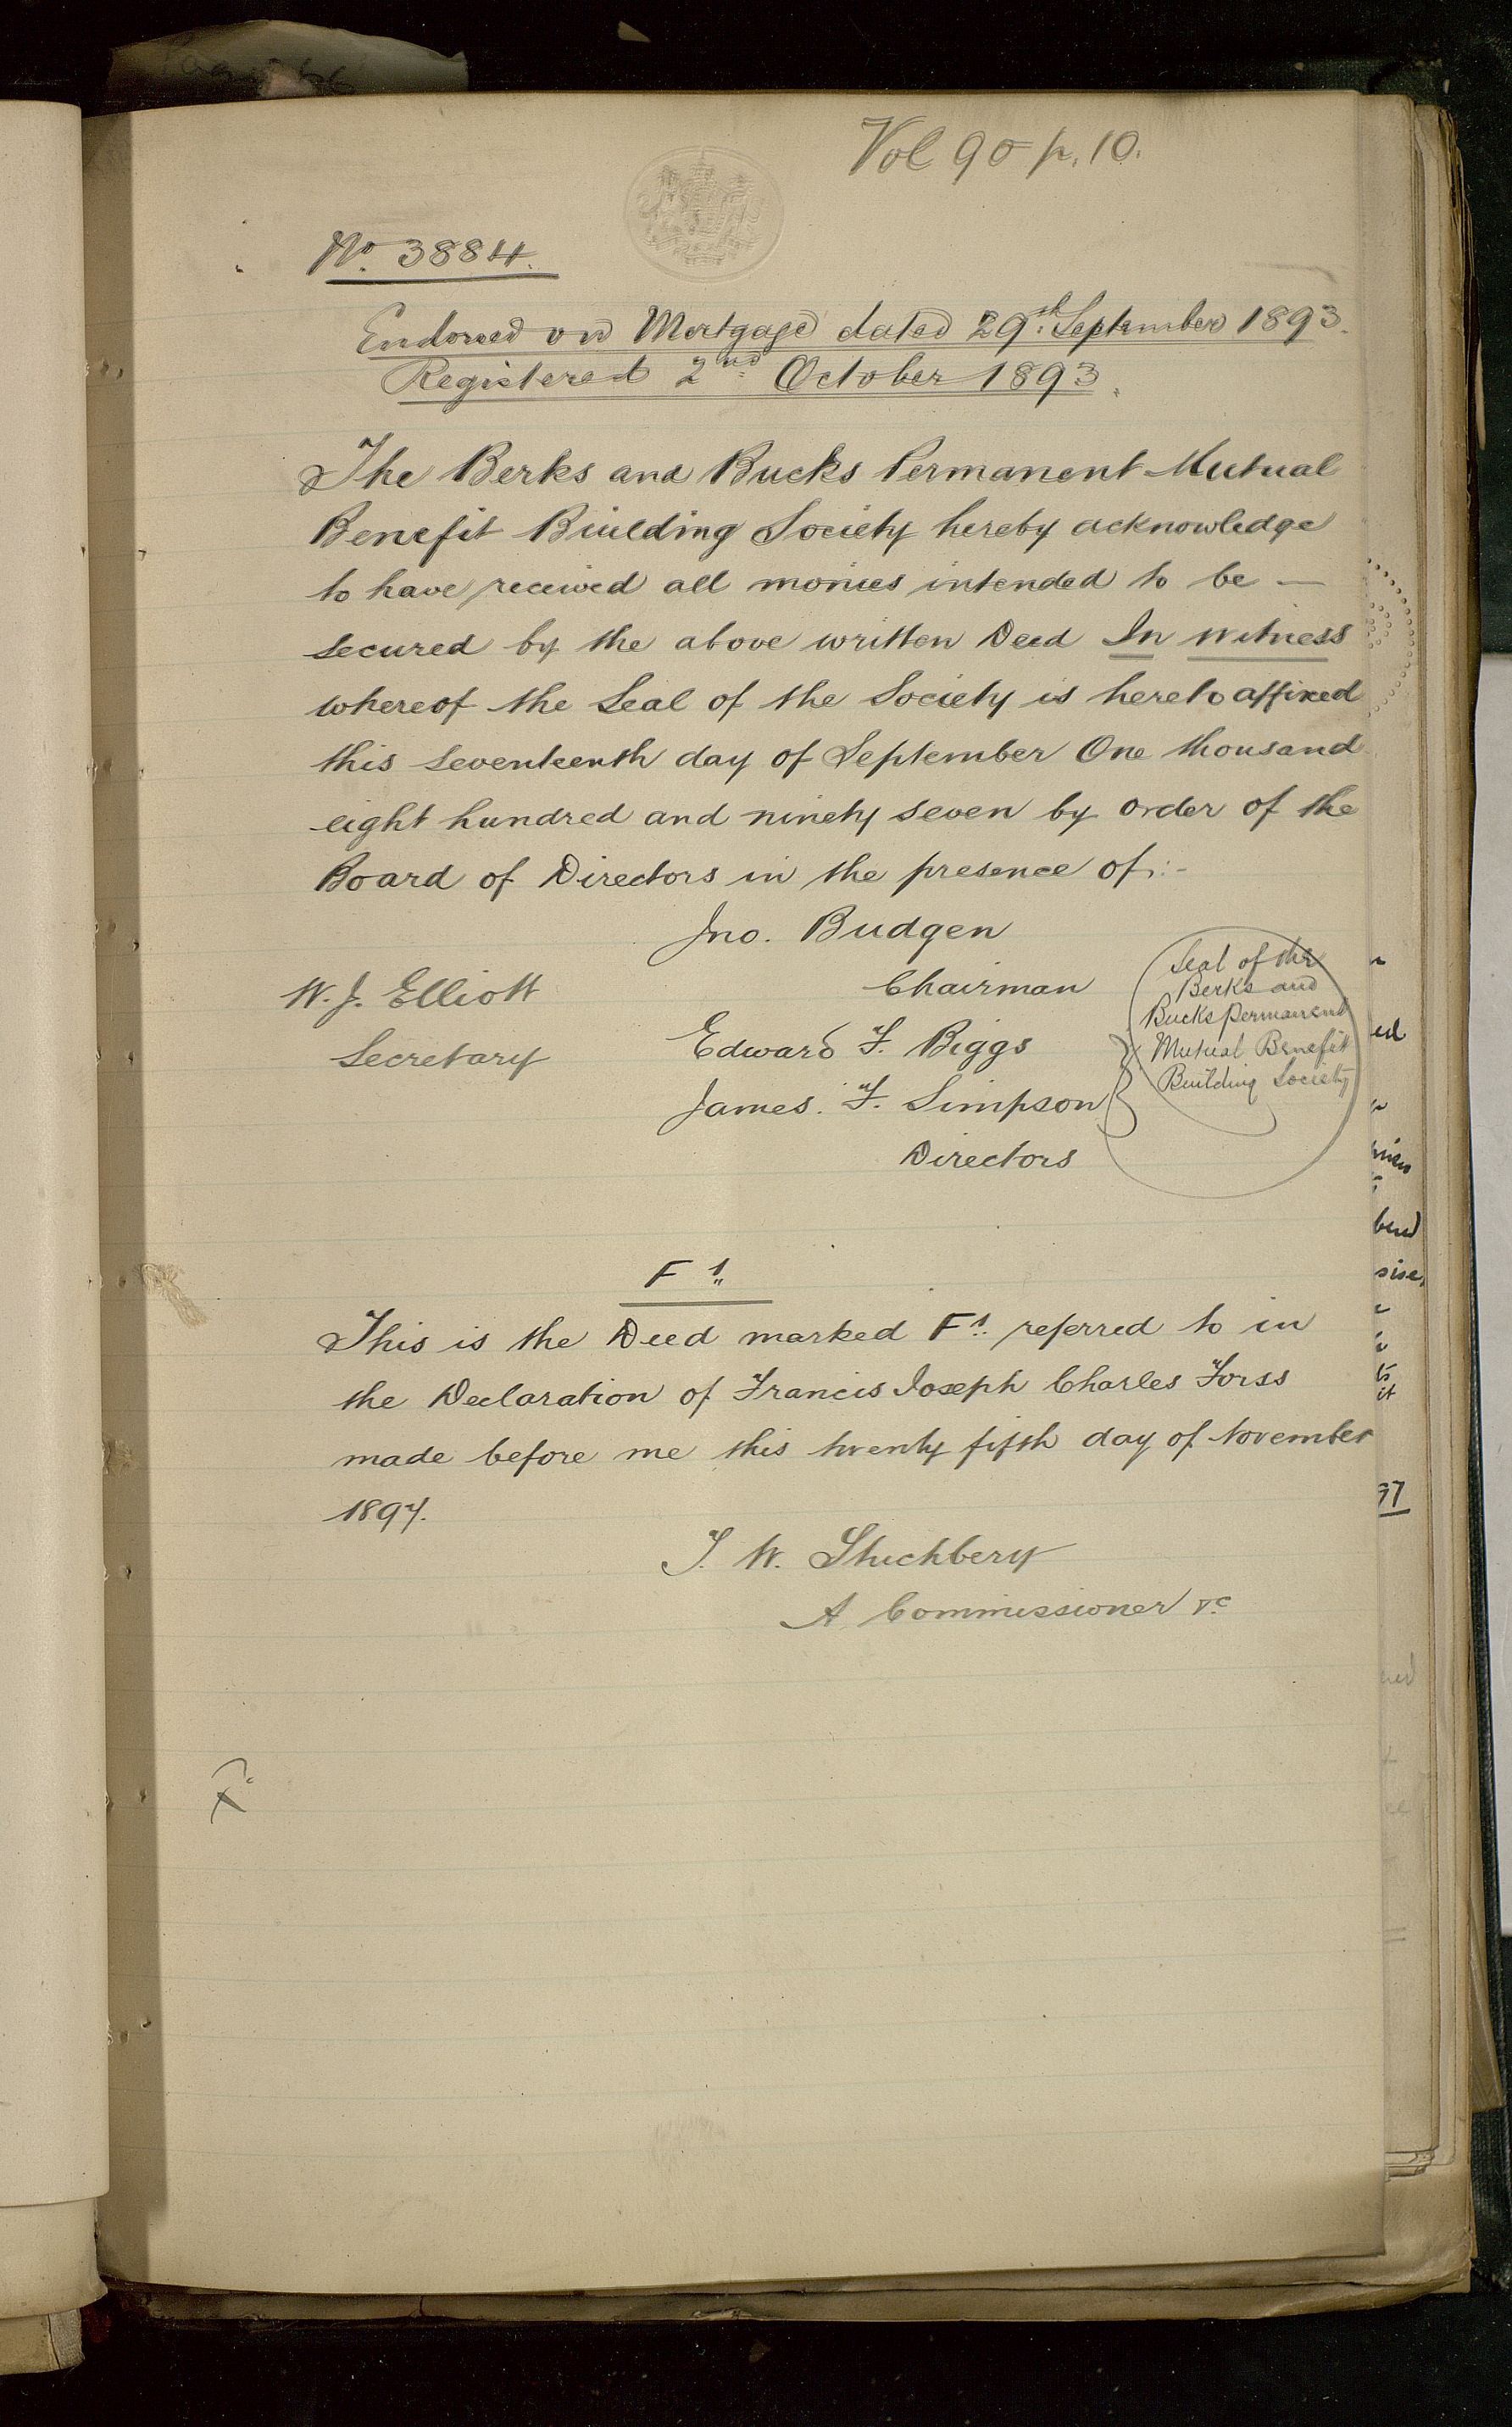 Vol 90 p. 10.
No. 3884.
Endorsed on Mortgage dated 29th September 1893.
Registered 2nd October 1893.
The Berks and Bucks Permanent Mutual
Benefit Building Society hereby acknowledge
to have received all monies intended to be —
secured by the above written Deed In witness
whereof the Seal of the Society is hereto affixed
this seventeenth day of September One thousand
eight hundred and ninety seven by order of the
Board of Directors in the presence of:-
Jno. Budgen
Chairman
W. J. Elliott
Secretary
Edward F. Biggs
James. F. Simpson
Directors
Seal of the
Berks and
Bucks Permanent
Mutual Benefit
Building Society
F 1.
This is the Deed marked F1. referred to in
the Declaration of Francis Joseph Charles Forss
made before me this twenty fifth day of November
1897.
J. W. Stuchbery
A Commissioner &c